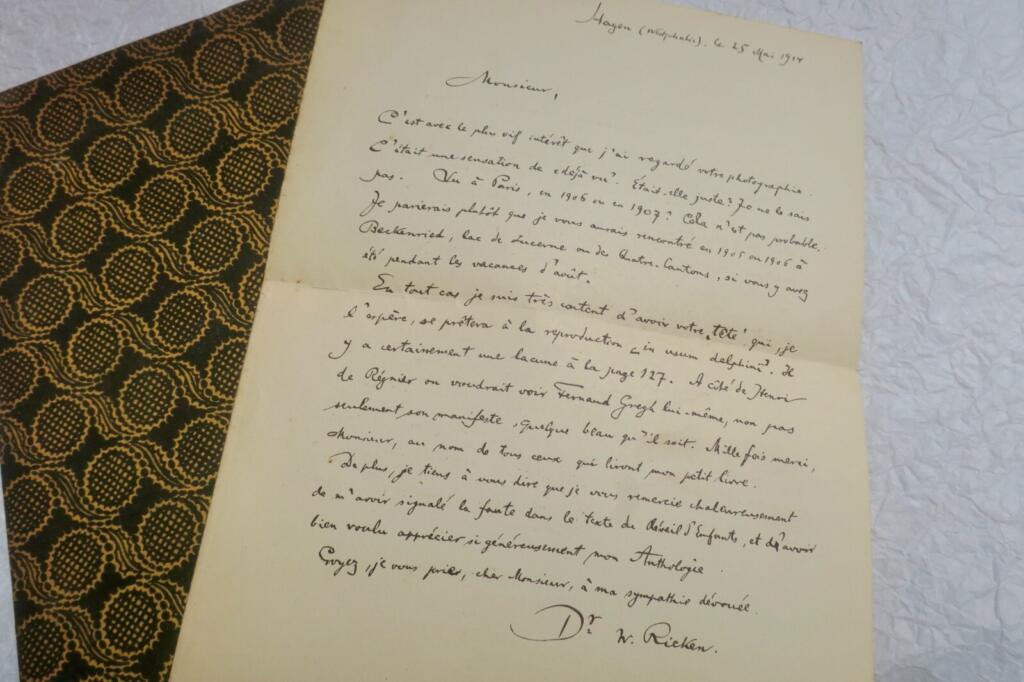 Hagen (Westphalie), le 25 Mai 1914
Monsieur,
C'est avec le plus vif intérêt que j'ai regardé votre photographie.
C'était une sensation de «déjà vu». Était-elle juste? Je ne le sais
pas. Vu à Paris, en 1906 ou en 1907? Cela n'est pas probable.
Je parierais plutôt que je vous aurais rencontré en 1905 ou 1906 à
Beckenried, lac de Lucerne ou des Quatre-Cantons, si vous y avez
été pendant les vacances d'août.
En tout cas je suis très content d'avoir votre "tête" qui, je
l'espère, se prêtera à la reproduction "in usum delphini". Il
y a certainement une lacune à la page 127. A côté de Henri
de Régnier on voudrait voir Fernand Gregh lui-même, non pas
seulement son manifeste, quelque beau qu'il soit. Mille fois merci,
Monsieur, au nom de tous ceux qui liront mon petit livre.
De plus, je tiens à vous dire que je vous remercie chaleureusement
de m'avoir signalé la faute dans le texte du Réveil d'Enfants, et d'avoir
bien voulu apprécier si généreusement mon Anthologie.
Croyez, je vous prie, cher Monsieur, à ma sympathie dévouée.
Dr. W. Ricken.